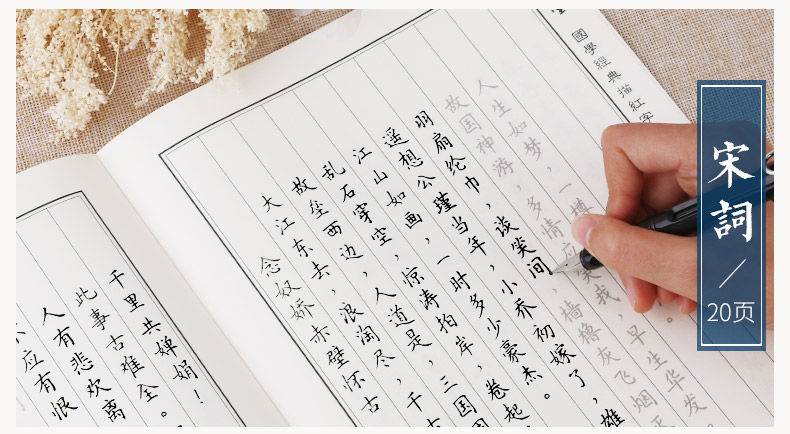 應有恨
人有悲欢离
此事古难全。
千里共婵娟！
念奴娇 赤壁怀古
大江东去，浪淘尽，千
故垒西边，人道是，三国
乱石穿空，惊涛拍岸，卷起
江山如画，一时多少豪杰。
遥想公瑾当年，小乔初嫁了，雄
羽扇纶巾，谈笑间，樯橹灰飞烟
故国神游，多情应笑我，早生华发
人生如梦，一樽
國學經典描紅字
宋詞
20页